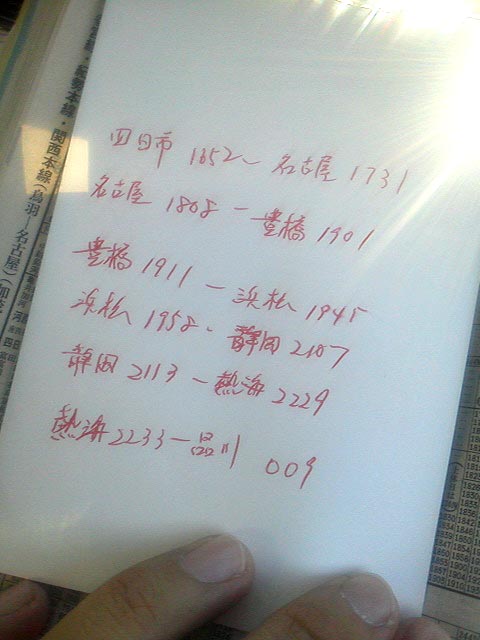 四日市 1652～名古屋 1731
名古屋 1808－豊橋 1901
豊橋 1911－浜松 1945
浜松 1952－静岡 2107
静岡 2113－熱海 2229
熱海 2233－品川 009
紀勢本線・関西本線（鳥羽－名古屋）